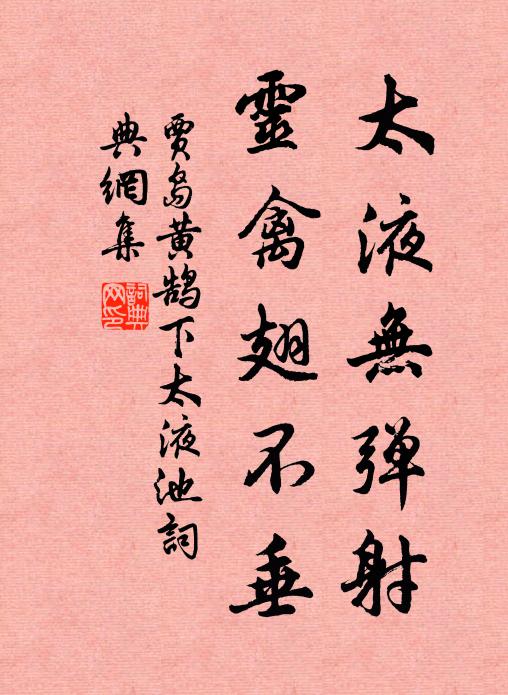 太液無弹射
靈禽翅不垂
賈島黄鹄下太液池詞
典網集
詞典网印